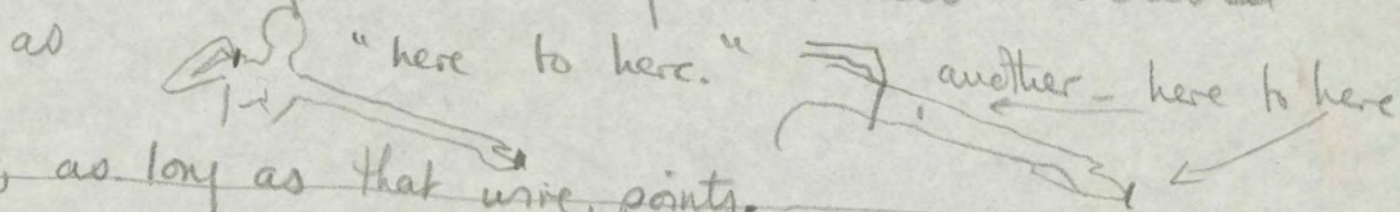 as "here to here." another - here to here
, as long as that wire points.